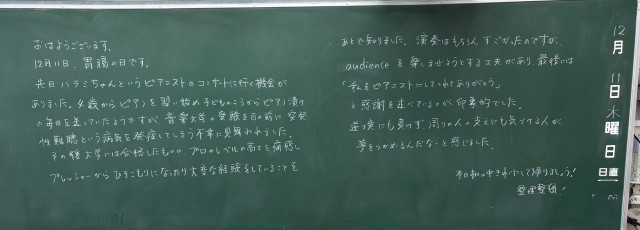 おはようございます。
12月11日、胃腸の日です。
先日ハラミちゃんというピアニストのコンサートに行く機会が
ありました。4歳からピアノを習い始め子どものころからピアノ漬け
の毎日を送っていたそうですが、音楽大学の受験を目の前に突発
性難聴という病気を発症してしまう不幸に見舞われました。
その後大学には合格したものの、プロのレベルの高さを痛感し
プレッシャーからひきこもりになったり大変な経験をしていることを
あとで知りました。演奏はもちろんすごかったのですが、
audienceを楽しませようとする工夫があり、最後には
「私をピアニストにしてくれてありがとう。」
と感謝を述べているのが印象的でした。
逆境にも負けず、周りの人の支えにも気づける人が、
夢をつかめるんだな〜と感じました。
きれいにして帰りましょう!
整理整頓!
12月11日木曜日
日直